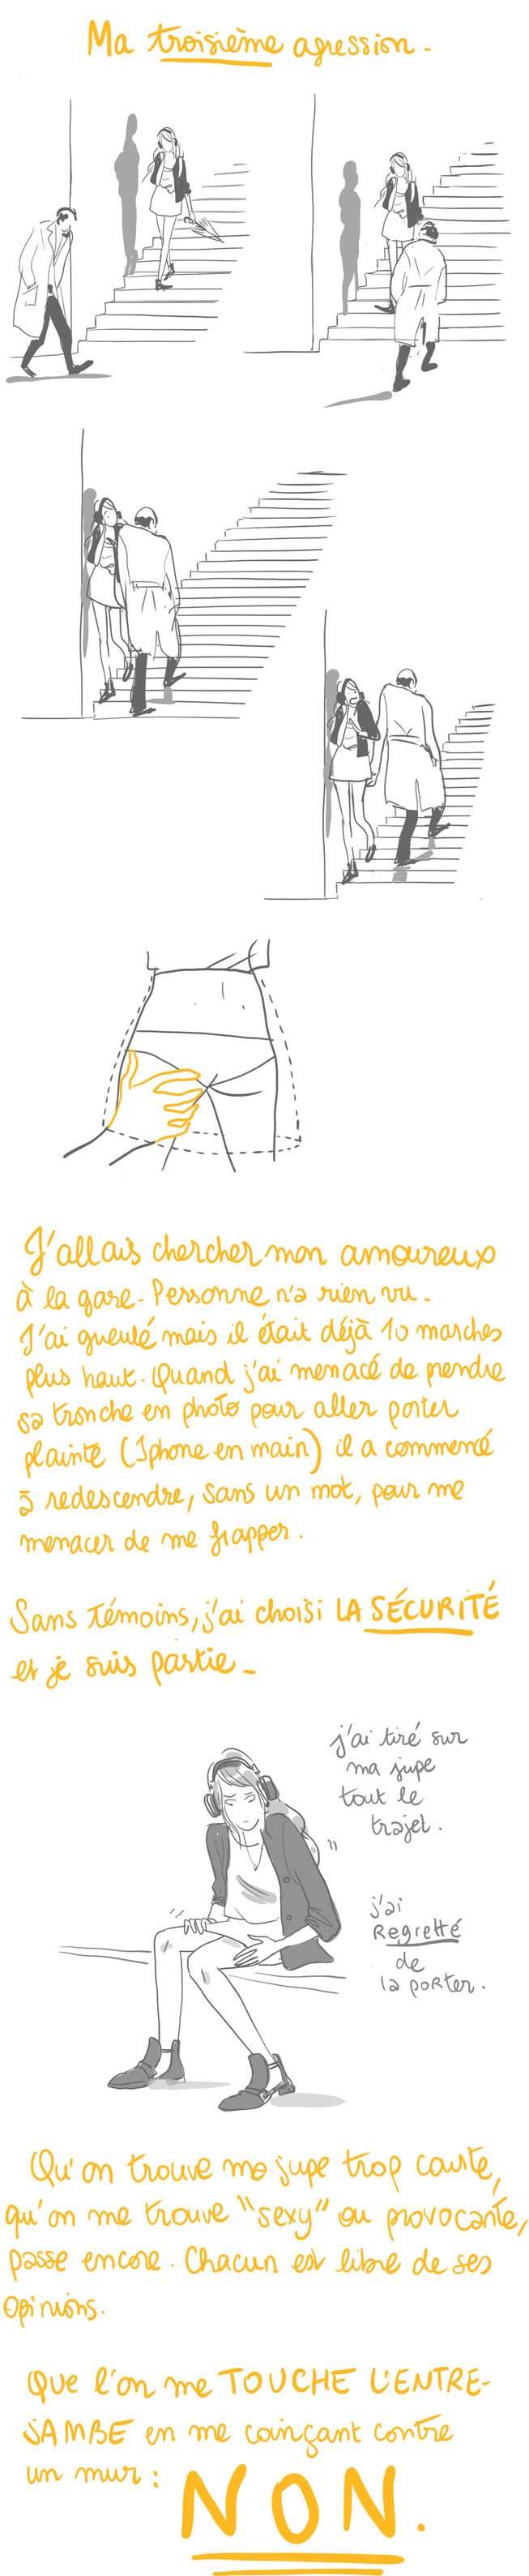 Ma troisième agression.
J'allais chercher mon amoureux
à la gare. Personne n'a rien vu.
J'ai gueulé mais il était déjà 10 marches
plus haut. Quand j'ai menacé de prendre
sa tronche en photo pour aller porter
plainte (Iphone en main) il a commencé
à redescendre, sans un mot, pour me
menacer de me frapper.
Sans témoins, j'ai choisi LA SÉCURITÉ
et je suis partie.
j'ai tiré sur
ma jupe
tout le
trajet.
j'ai
Regretté
de
la porter.
Qu'on trouve ma jupe trop courte,
qu'on me trouve "sexy" ou provocante,
passe encore. Chacun est libre de ses
opinions.
Que l'on me TOUCHE L'ENTRE-
JAMBE en me coinçant contre
un mur :
NON.